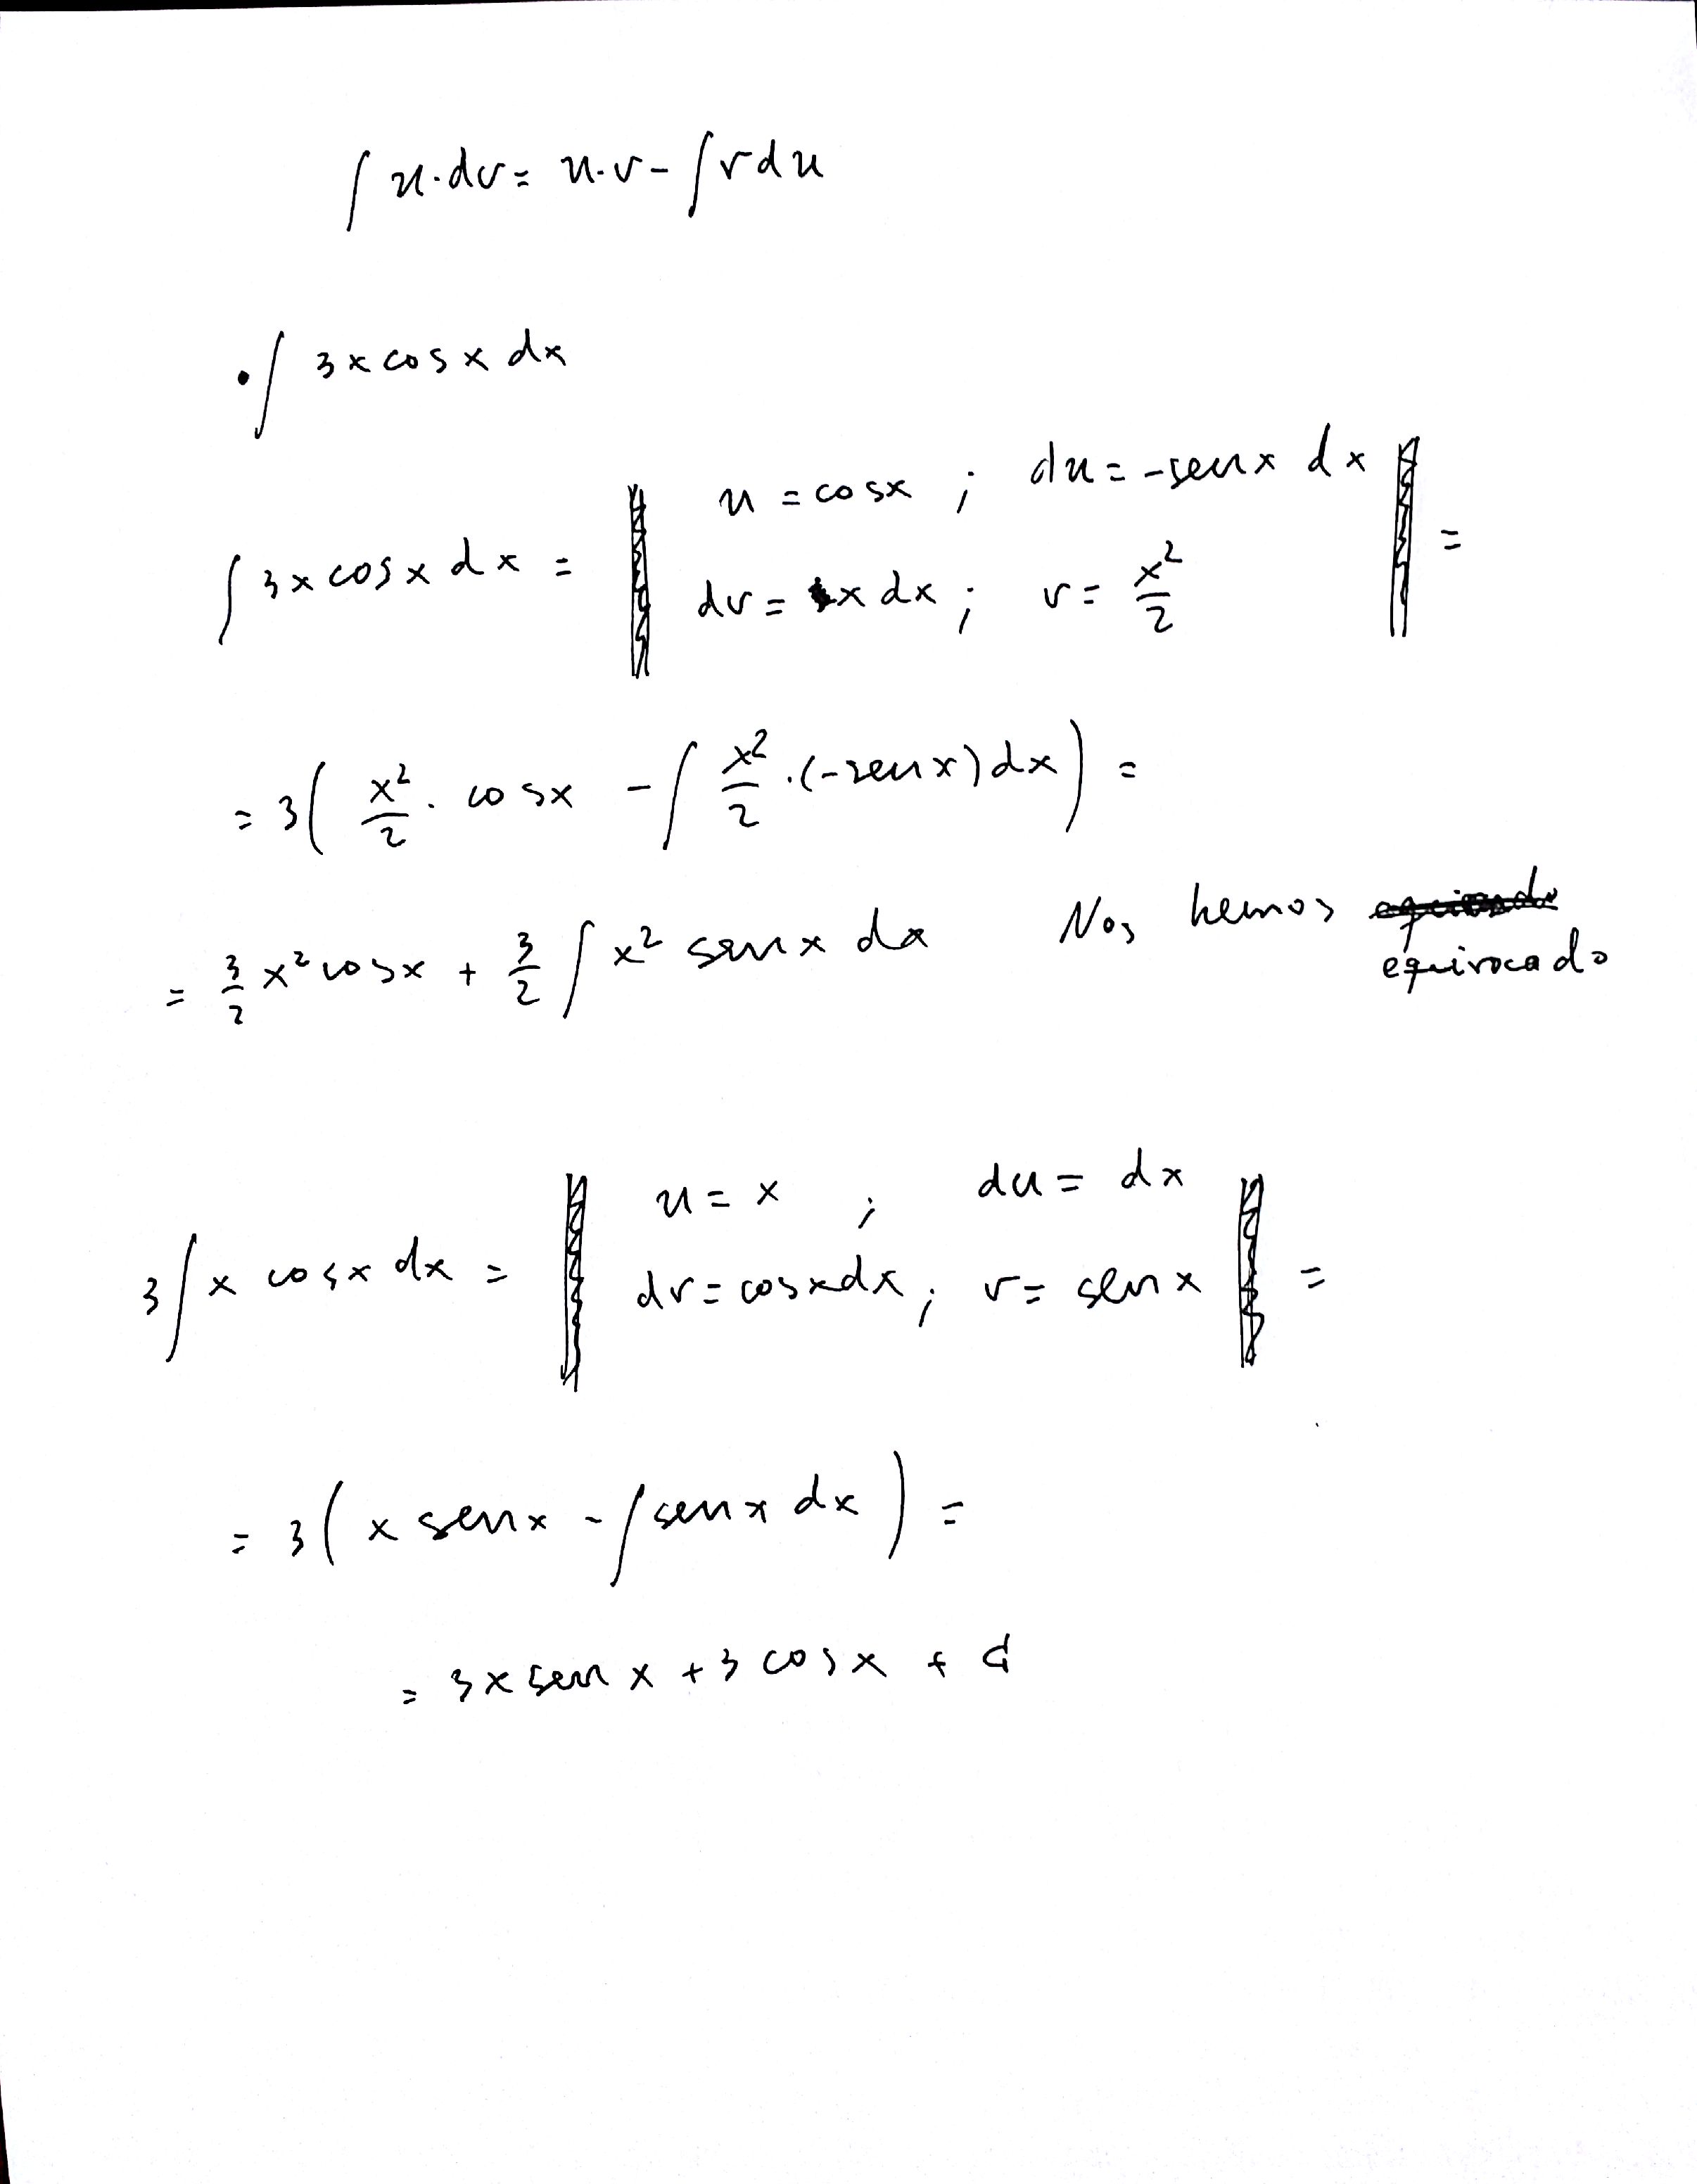 ∫ u·dv = u·v - ∫ v du
• ∫ 3x cos x dx
∫ 3x cos x dx = ‖ u = cos x ; du = -sen x dx ‖ =
dv = x dx ; v = x²/2
= 3( x²/2 · cos x - ∫ x²/2 · (-sen x) dx ) =
= 3/2 x² cos x + 3/2 ∫ x² sen x dx Nos hemos
equivocado
3 ∫ x cos x dx = ‖ u = x ; du = dx ‖ =
dv = cos x dx ; v = sen x
= 3( x sen x - ∫ sen x dx ) =
= 3x sen x + 3 cos x + C